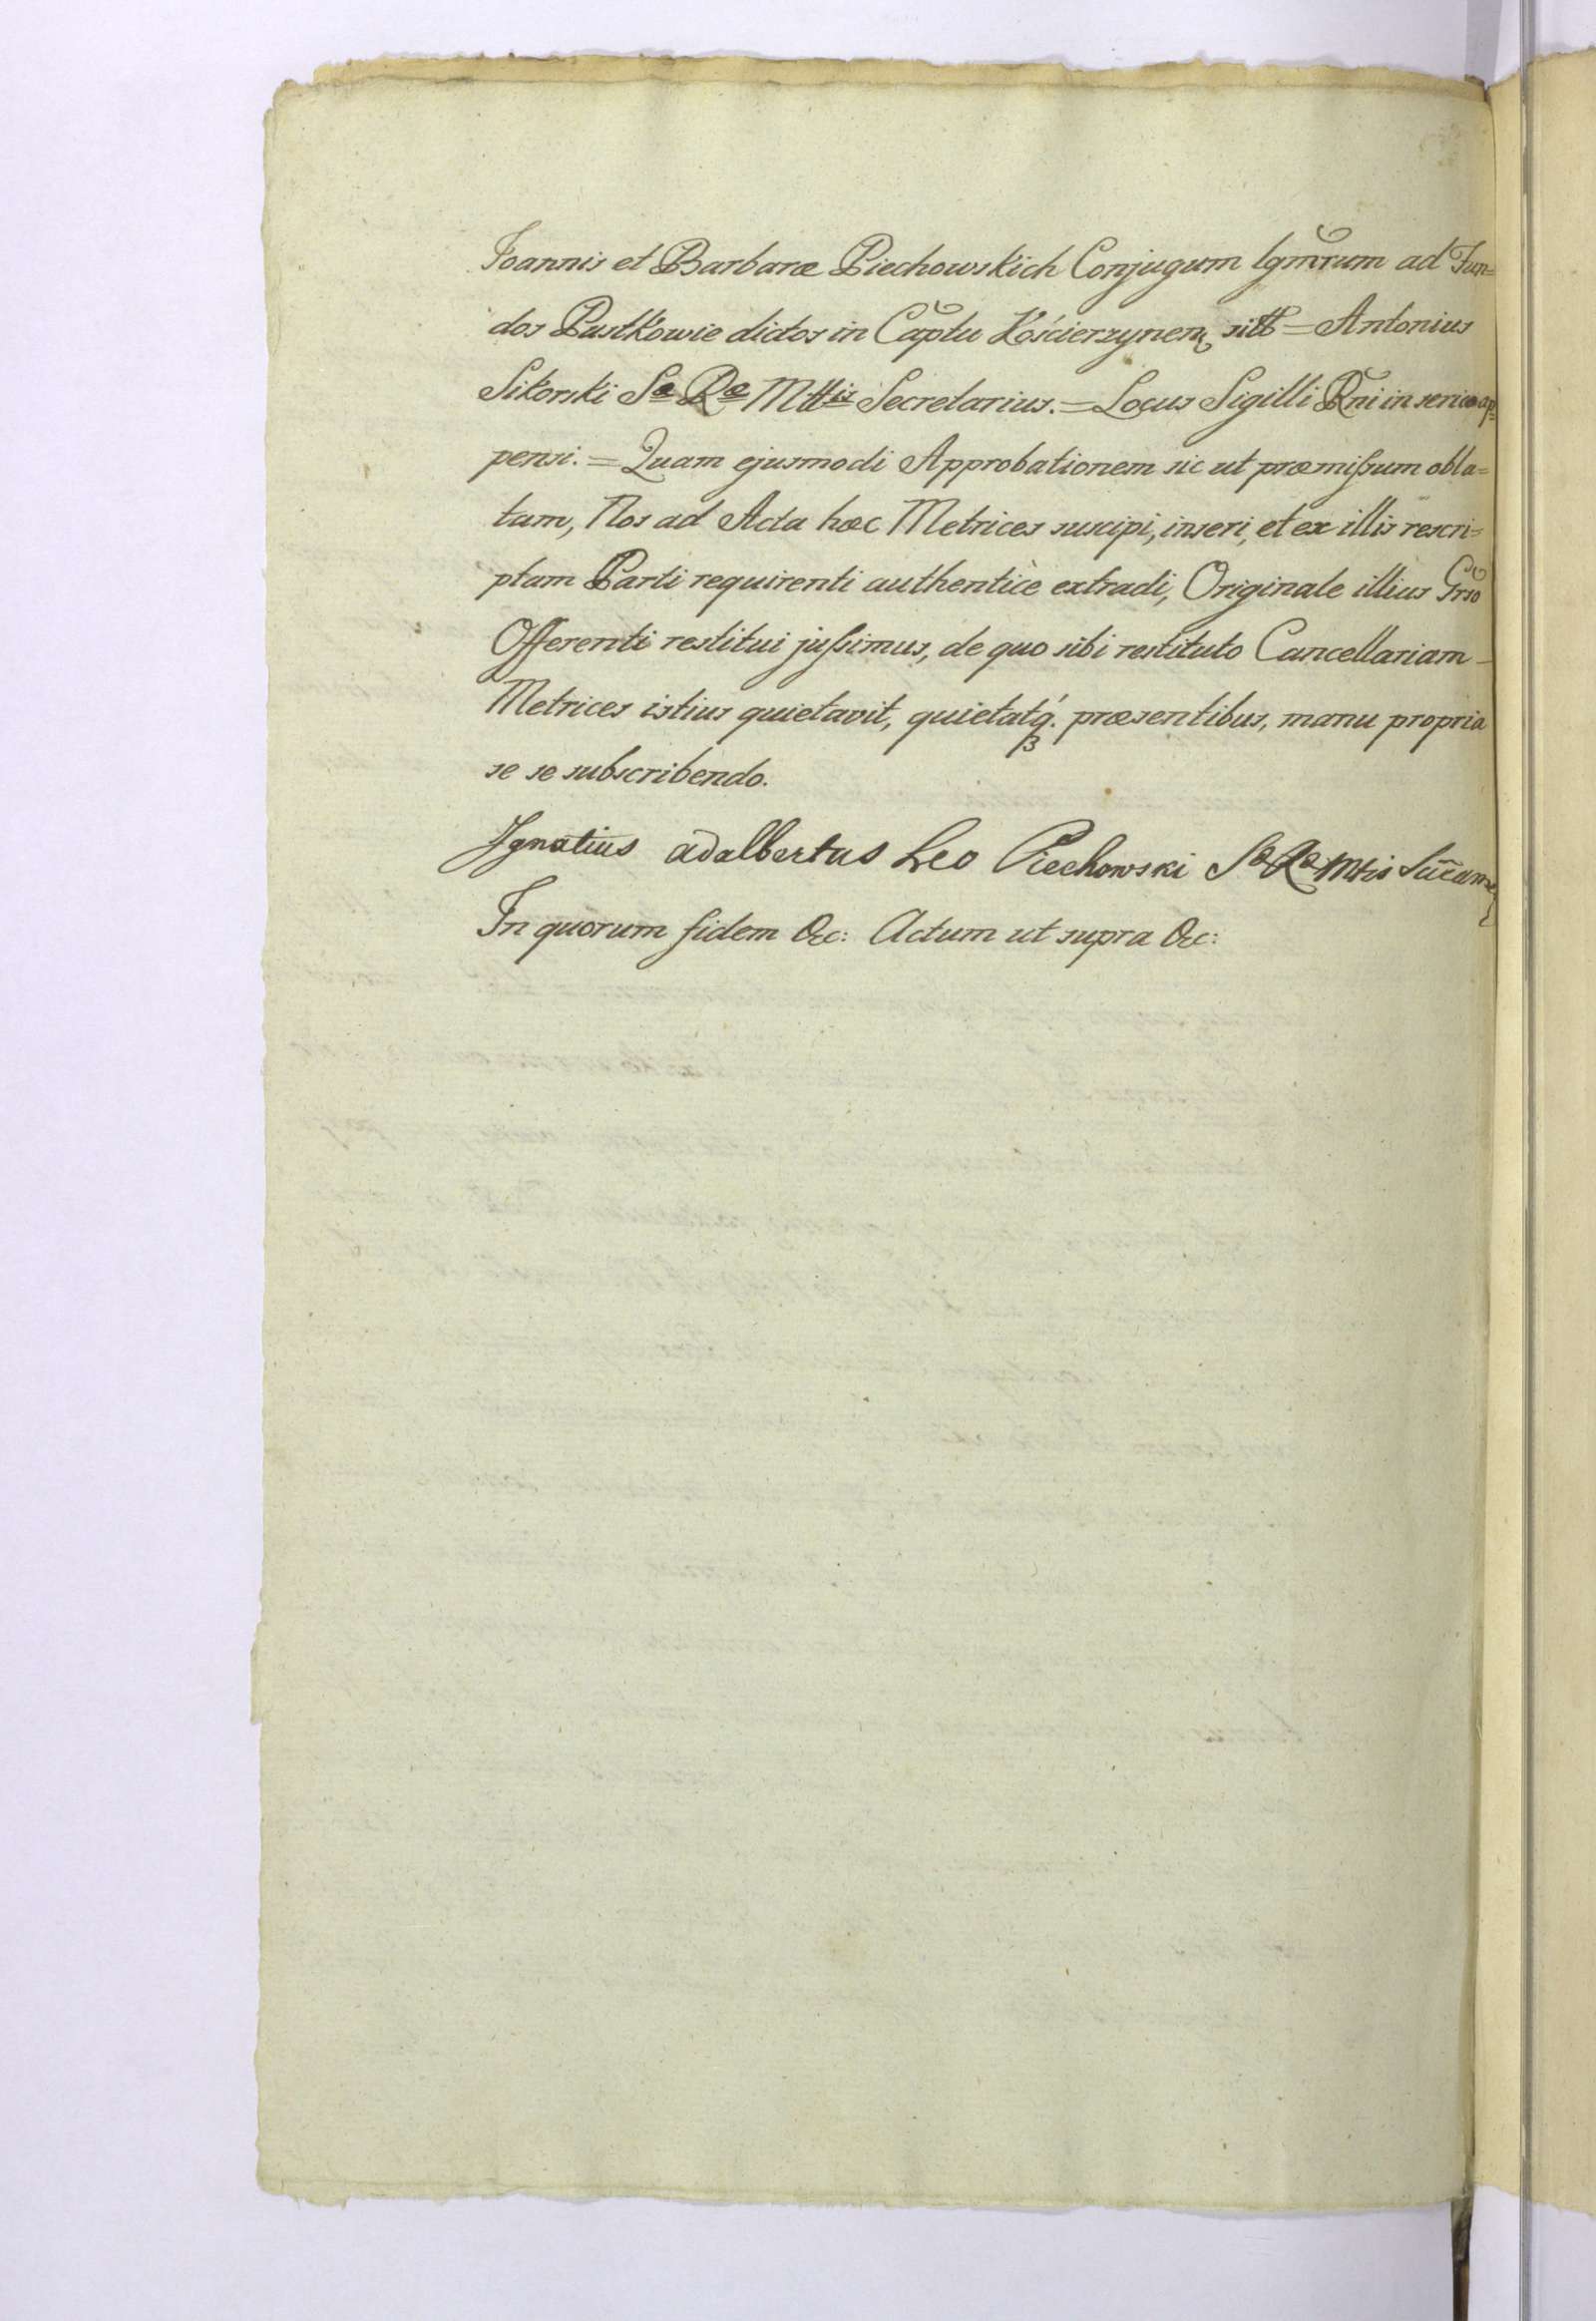 Joannis et Barbaræ Piechowskich Conjugum lgmrum ad Fun=
dos Pustkowie dictos in Captu Kościerzynen sitt = Antonius
Sikorski Sæ Ræ Mttis Secretarius. = Locus Sigilli Rni in serico ap=
pensi. = Quam ejusmodi Approbationem sic ut præmissum obla=
tam, Nos ad Acta hæc Metrices suscipi, inseri, et ex illis rescri=
ptam Parti requirenti authenticè extradi, Originale illius Grso
Offerenti restitui jussimus, de quo sibi restituto Cancellariam
Metrices istius quietavit, quietatq́. præsentibus, manu propria
se se subscribendo.
Ignatius adalbertus Leo Piechowski Sæ Ræ Mtis
In quorum fidem &c: Actum ut supra &c: